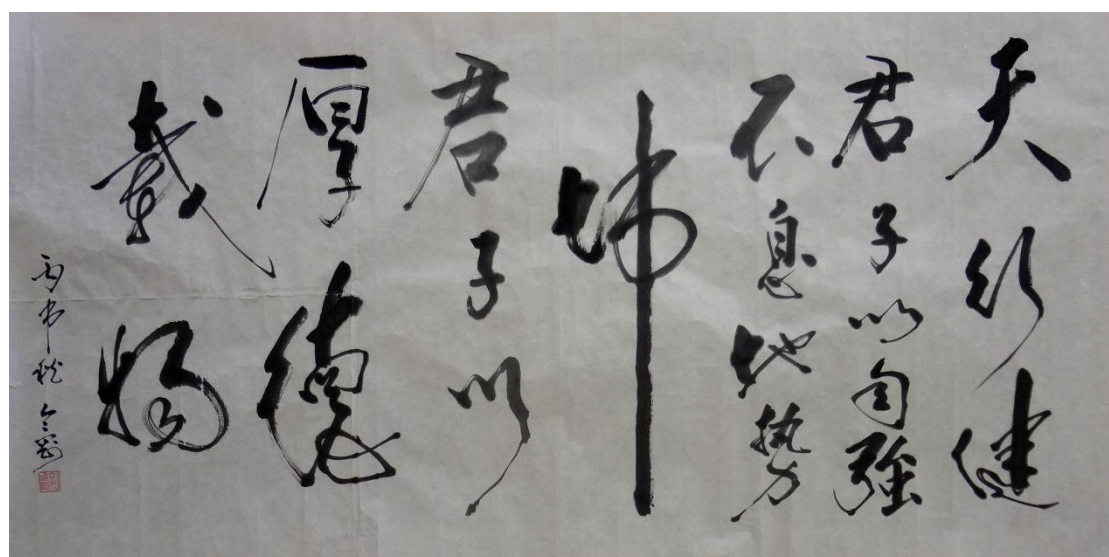 天行健
君子以自强
不息地势
坤
君子以
厚德
载物
丙申秋